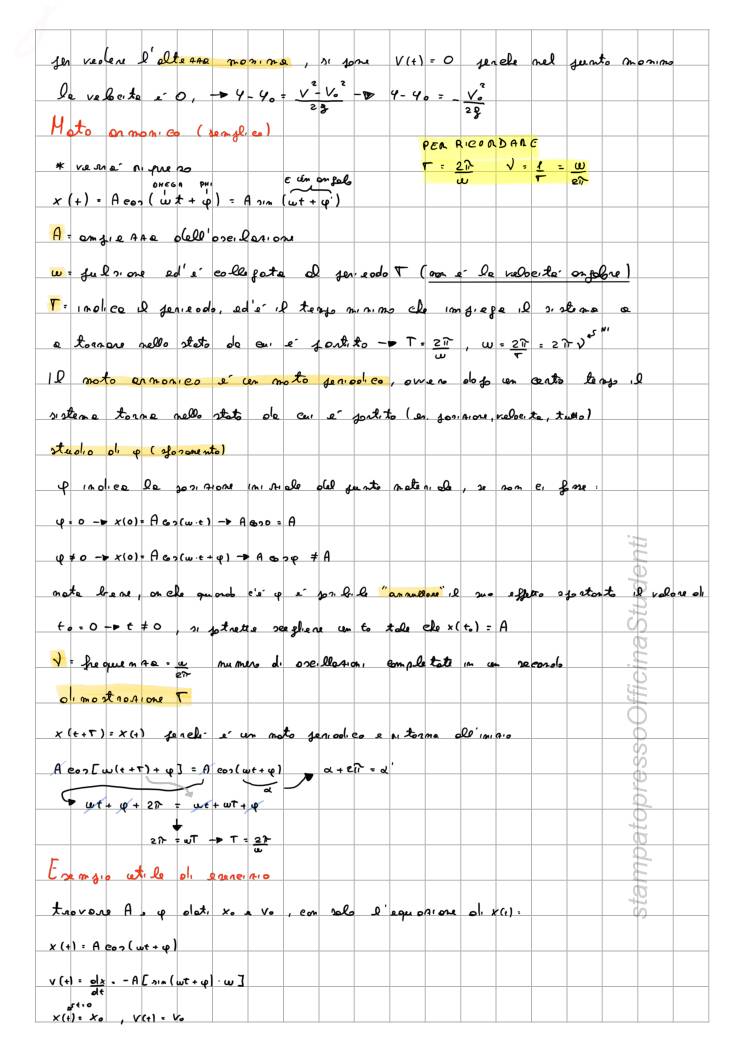 per vedere l'altezza massima, si pone V(t) = 0 perche nel punto massimo
la velocità é 0, → y-y₀ = (V² - V₀²)/2g → y-y₀ = - V₀²/2g
Moto armonico (semplice)
PER RICORDARE
T = 2π/ω ν = 1/T = ω/2π
* verrá ripreso
OMEGA PHI é un angolo
x(t) = A cos(ωt + φ) = A sin(ωt + φ')
A = ampiezza dell'oscillazione
ω = pulsazione ed'é collegata al periodo T (non é la velocitá angolare)
T = indica il periodo, ed'é il tempo minimo che impiega il sistema a
a tornare nello stato da cui é partito → T = 2π/ω, ω = 2π/T = 2πν NI
Il moto armonico é un moto periodico, ovvero dopo un certo tempo il
sistema torna nello stato da cui é partito (es. posizione, velocita, tutto)
studio di φ (sfasamento)
φ indica la posizione iniziale del punto materiale, se non ci fosse:
φ = 0 → x(0) = A cos(ω·t) → A cos0 = A
φ ≠ 0 → x(0) = A cos(ω·t+φ) → A cosφ ≠ A
nota bene, anche quando c'é φ é possibile "annullare" il suo effetto spostando il valore di
t₀ = 0 → t ≠ 0, si potrebbe scegliere un t₀ tale che x(t₀) = A
ν = frequenza = ω/2π numero di oscillazioni completate in un secondo
dimostrazione T
x(t+T) = x(t) perché é un moto periodico e si torna all'inizio
A cos[ω(t+T) + φ] = A cos(ωt + φ) α α + 2π = α'
ωt + φ + 2π = ωt + ωT + φ
2π = ωT → T = 2π/ω
Esempio utile di esercizio
trovare A e φ dati x₀ e v₀, con solo l'equazione di x(t):
x(t) = A cos(ωt + φ)
v(t) = dx/dt = -A[sin(ωt + φ) · ω]
t=0
x(t) = x₀, v(t) = v₀
stampatopressoOfficinaStudenti